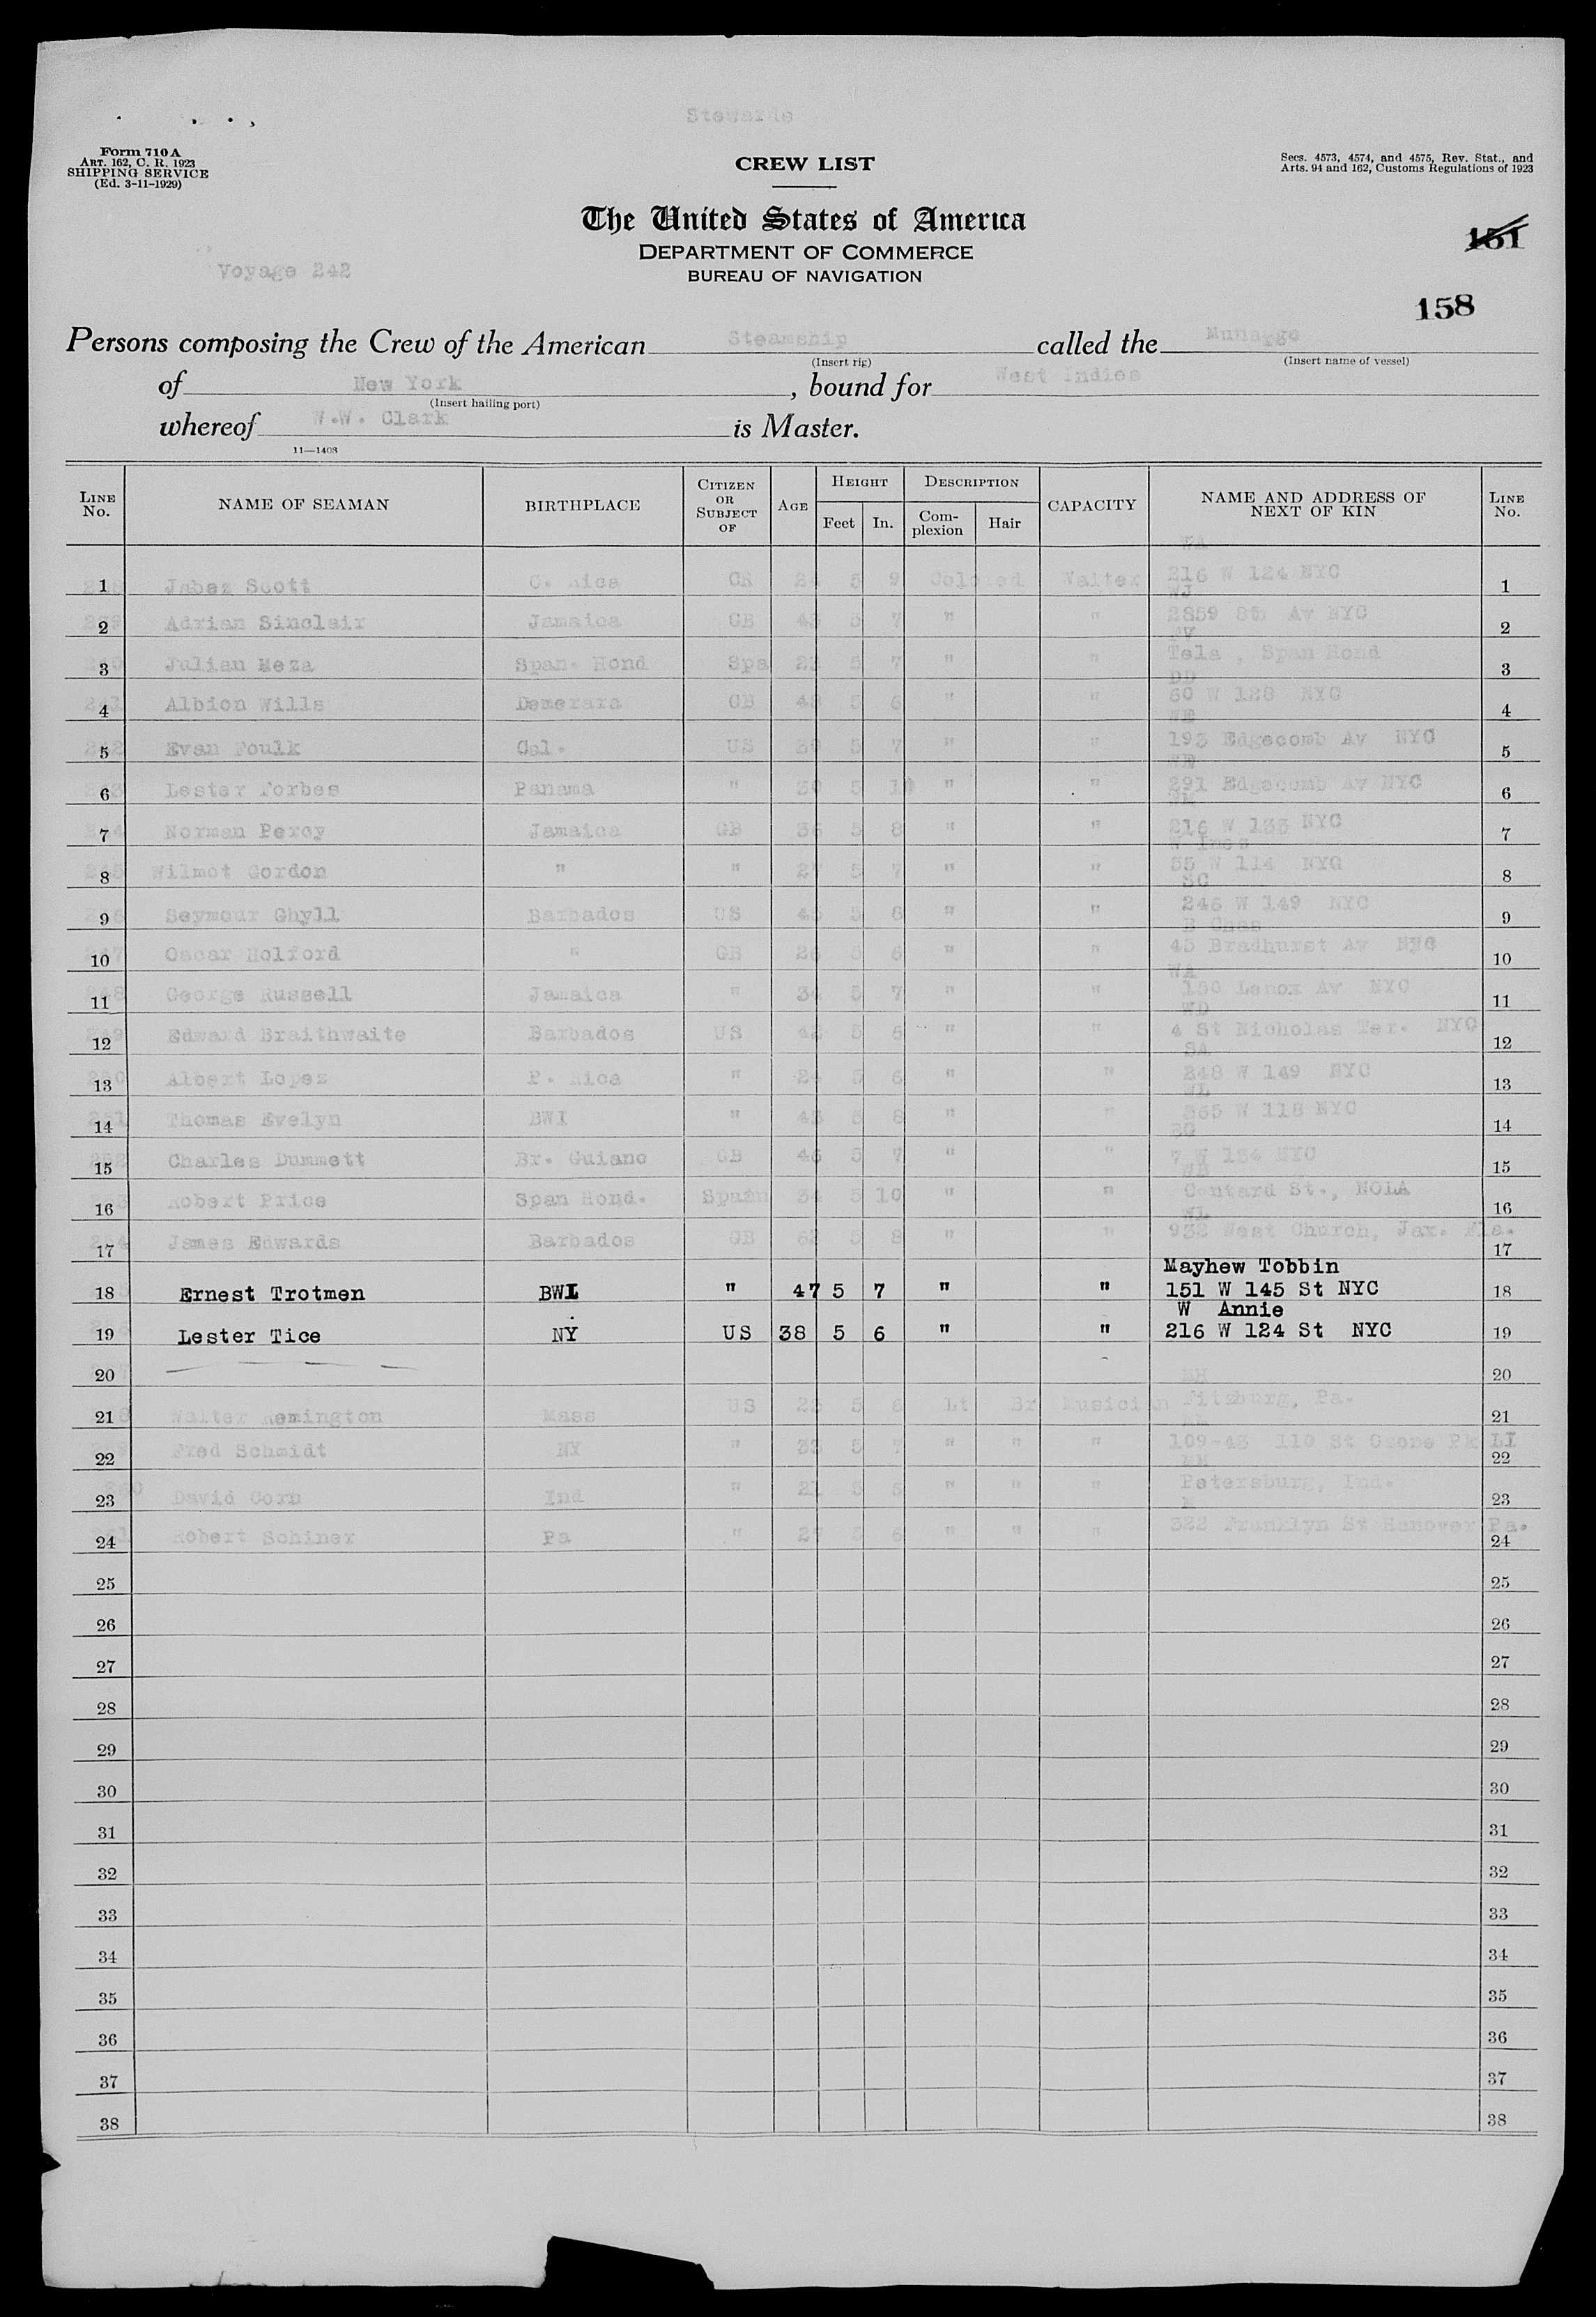 Stewards
Form 710 A
ART. 162, C. R. 1923
SHIPPING SERVICE
(Ed. 3-11-1929)
CREW LIST
Secs. 4573, 4574, and 4575, Rev. Stat., and
Arts. 94 and 162, Customs Regulations of 1923
The United States of America
DEPARTMENT OF COMMERCE
BUREAU OF NAVIGATION
151
Voyage 242
158
Persons composing the Crew of the American Steamship called the Munargo
(Insert rig) (Insert name of vessel)
of New York, bound for West Indies
(Insert hailing port)
whereof W.W. Clark is Master.
11—1403
LINE No. NAME OF SEAMAN BIRTHPLACE CITIZEN OR SUBJECT OF AGE HEIGHT Feet In. DESCRIPTION Complexion Hair CAPACITY NAME AND ADDRESS OF NEXT OF KIN LINE No.
WA
1 Jabez Scott C. Rica GB 5 9 Colored Waiter 216 W 124 NYC 1
WJ
2 Adrian Sinclair Jamaica GB 43 5 7 " " 2859 8th Av NYC 2
3 Julian Meza Span. Hond Spa 5 7 " " Tela , Span Hond 3
DD
4 Albion Wills Demerara GB 48 5 6 " " 60 W 128 NYC 4
WE
5 Evan Foulk Cal. US 5 7 " " 193 Edgecomb Av NYC 5
6 Lester Forbes Panama " 30 5 10 " " 291 Edgecomb Av NYC 6
WM
7 Norman Percy Jamaica GB 36 5 8 " " 216 W 133 NYC 7
W Ines
8 Wilmot Gordon " " 27 5 7 " " 55 W 114 NYC 8
SC
9 Seymour Ghyll Barbados US 43 5 8 " " 246 W 149 NYC 9
B Chas
10 Oscar Holford " GB 26 5 6 " " 45 Bradhurst Av NYC 10
WA
11 George Russell Jamaica " 34 5 7 " " 150 Lenox Av NYC 11
WD
12 Edward Braithwaite Barbados US 5 6 " " 4 St Nicholas Ter. NYC 12
SA
13 Albert Lopez P. Rica " 24 5 6 " " 248 W 149 NYC 13
WL
14 Thomas Evelyn BWI " 43 5 8 " " 365 W 118 NYC 14
15 Charles Dummett Br. Guiano GB 46 5 7 " " 7 W 134 NYC 15
16 Robert Price Span Hond. Spain 34 5 10 " " Coutard St., NOLA 16
WL
17 James Edwards Barbados GB 5 8 " " 932 West Church, Jax. Fla. 17
Mayhew Tobbin
18 Ernest Trotmen BWI " 47 5 7 " " 151 W 145 St NYC 18
W Annie
19 Lester Tice NY US 38 5 6 " " 216 W 124 St NYC 19
20 20
MH
21 Walter Remington Mass US 5 Lt Br Musician Fitzburg, Pa. 21
22 Fred Schmidt NY " 5 7 " " " 109-43 110 St Ozone Pk LI 22
23 David Corn Ind " 21 5 " " " Petersburg, Ind. 23
24 Robert Schiner Pa " 27 5 6 " " " 322 Franklyn St Hanover Pa. 24
25 25
26 26
27 27
28 28
29 29
30 30
31 31
32 32
33 33
34 34
35 35
36 36
37 37
38 38